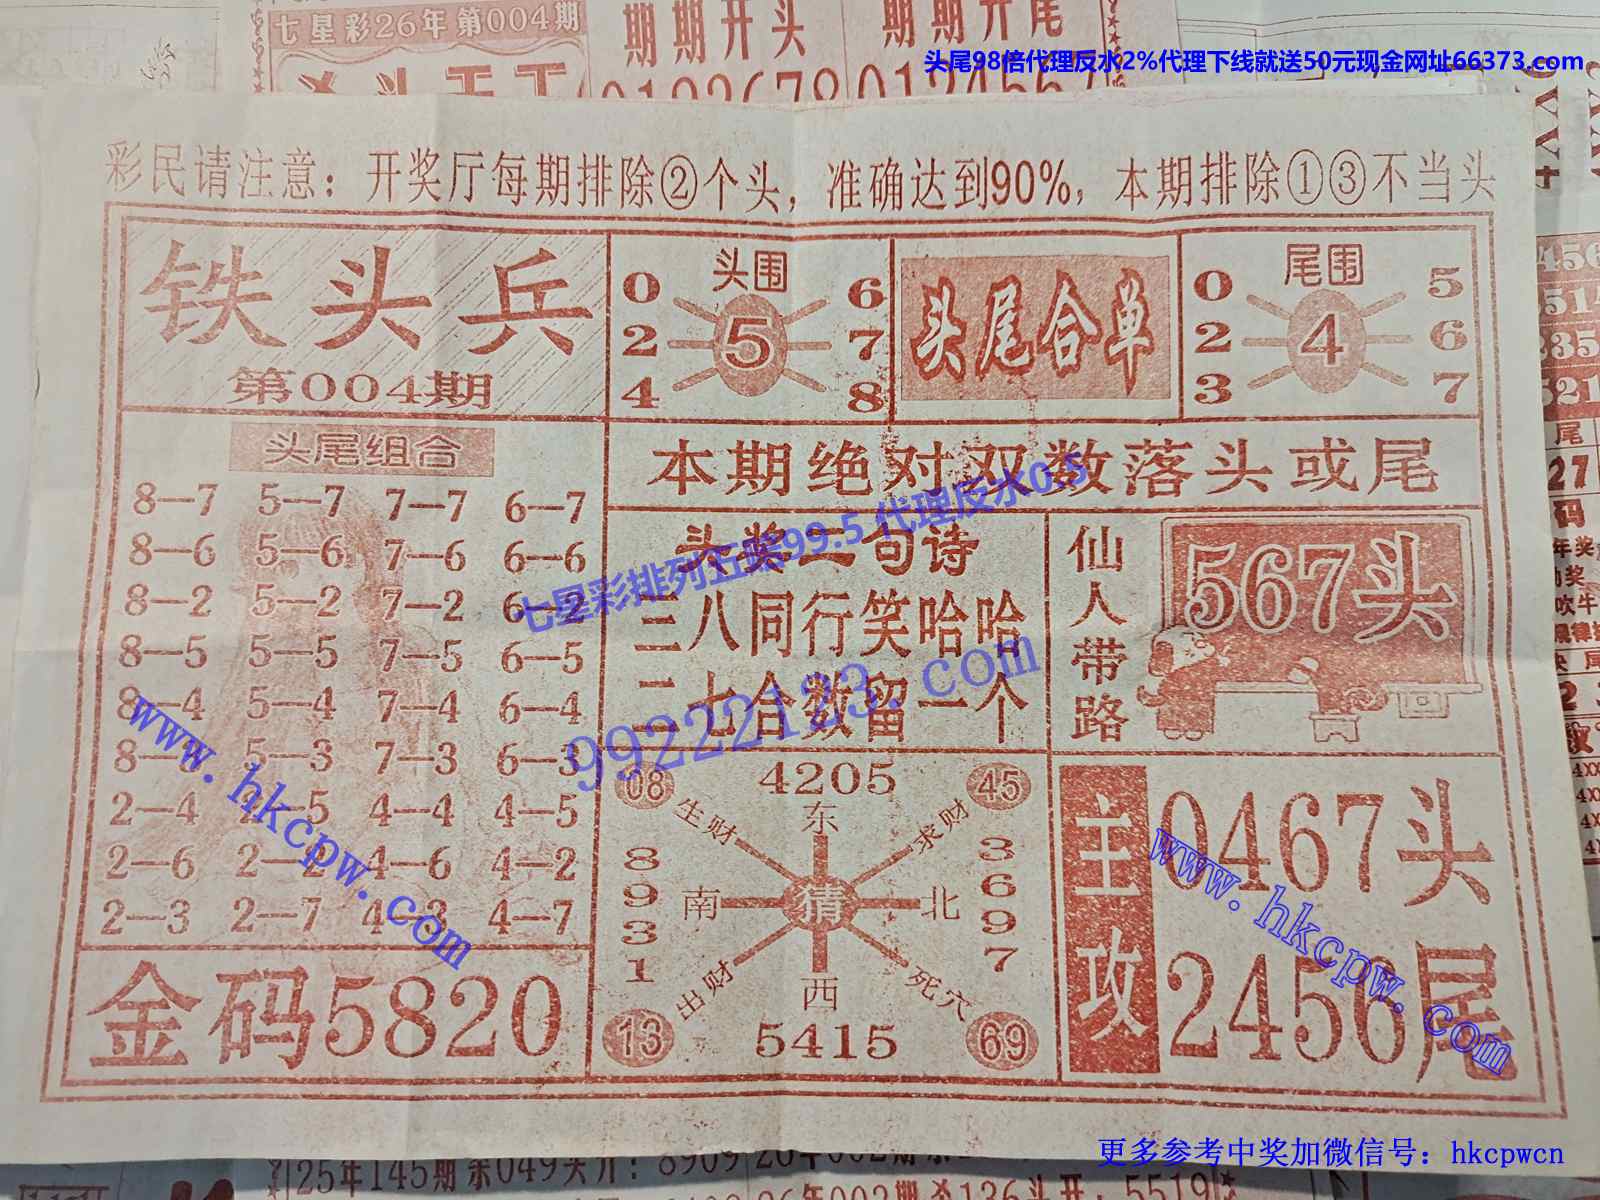 七星彩26年第004期
期期开头
期期开尾
头尾98倍代理反水2%代理下线就送50元现金网址66373.com
彩民请注意：开奖厅每期排除②个头，准确达到90%，本期排除①③不当头
铁头兵
第004期
头围
0 6
2 5 7
4 8
头尾合单
尾围
0 5
2 4 6
3 7
头尾组合
8—7 5—7 7—7 6—7
8—6 5—6 7—6 6—6
8—2 5—2 7—2 6—2
8—5 5—5 7—5 6—5
8—4 5—4 7—4 6—4
8—3 5—3 7—3 6—3
2—4 2—5 4—4 4—5
2—6 2—2 4—6 4—2
2—3 2—7 4—3 4—7
金码5820
本期绝对双数落头或尾
头奖二句诗
三八同行笑哈哈
二七合数留一个
仙人带路
567头
08 4205 45
生财 东 求财
8931 南 猜 北 3697
出财 西 死穴
13 5415 69
主攻
0467头
2456尾
七星彩排列五赔99.5代理反水0.5
99222123.com
www.hkcpw.com
www.hkcpw.com
更多参考中奖加微信号：hkcpwcn